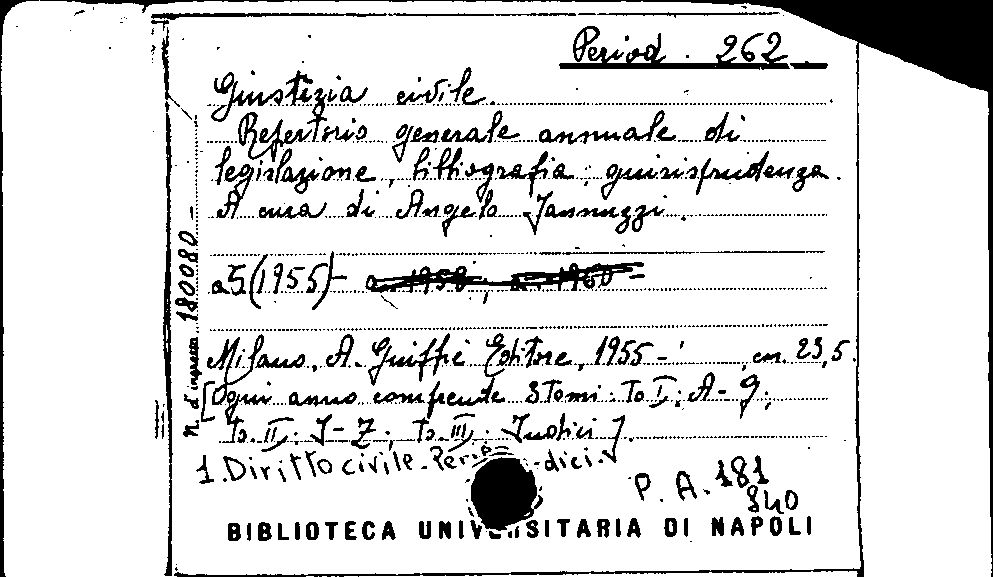 Period. 262
Giustizia civile.
Repertorio generale annuale di
legislazione, bibliografia, giurisprudenza.
A cura di Angelo Jannuzzi.
a5(1955)- a. 1958; a. 1960-
Milano, A. Giuffrè Editore, 1955- , cm. 23,5.
[Ogni anno comprende 3 tomi: To I: A-J;
To. II: J-Z; To. III: Indici].
1. Diritto civile - Periodici.
P. A. 181
840
BIBLIOTECA UNIVERSITARIA DI NAPOLI
N. d'ingresso 180080-